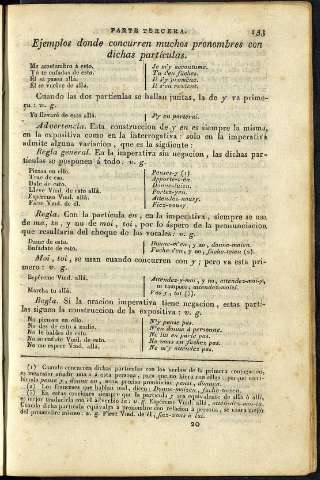 PARTE TERCERA. 153
Ejemplos donde concurren muchos pronombres con
dichas partículas.
Me acostumbro á esto. Je m'y accoutume.
Tú te enfadas de esto. Tu t'en fâches.
Él se pasea allá. Il s'y promène.
Él se vuelve de allá. Il s'en revient.
Cuando las dos partículas se hallan juntas, la de y va prime-
ra: v. g.
Yo llevaré de esto allá. J'y en porterai.
Advertencia. Esta construccion de y en es siempre la misma,
en la expositiva como en la interrogativa: solo en la imperativa
admite alguna variacion, que es la siguiente:
Regla general. En la imperativa sin negacion, las dichas par-
tículas se posponen á todo: v. g.
Piensa en ello. Penses-y (1)
Trae de eso. Apporte-en.
Dale de esto. Donne-lui-en.
Lleve Vmd. de esto allá. Portez-y-en.
Espérenos Vmd. allá. Attendez-nous-y.
Fíese Vmd. de él. Fiez-vous-y.
Regla. Con la partícula en, en la imperativa, siempre se usa
de me, te, y no de moi, toi, por lo áspero de la pronunciacion
que resultaria del choque de las vocales: v. g.
Dame de esto. Donne-m'en, y no, donne-moi-en.
Enfádate de esto. Fâche-t'en, y no, fâche-toi-en (2).
Moi, toi, se usan cuando concurren con y; pero va esta pri-
mero: v. g.
Espéreme Vmd. allá. Attendez-y-moi, y no, attendez-moi-y,
ni tampoco, attendez-m'y.
Marcha tú allá. Vas-y-toi (3).
Regla. Si la oracion imperativa tiene negacion, estas partí-
las siguen la construccion de la expositiva: v. g.
No pienses en ello. N'y pense pas.
No des de esto á nadie. N'en donne à personne.
No le hables de esto. Ne lui en parle pas.
No se enfade Vmd. de esto. Ne vous en fachez pas.
No me espere Vmd. allá. Ne m'y attendez pas.
(1) Cuando concurren dichas partículas con los verbos de la primera conjugacion,
(2) Los Franceses que hablan mal, dicen: Donne-moi-zen, fache-toi-zen.
es mejor traducirla con el adverbio de: v. g. Espéreme Vmd. allá, attendez-moi-là.
Cuando dicha partícula equivalga á pronombre con relacion á persona, se usará mejor
del pronombre mismo: v. g. Fíese Vmd. de él, fiez-vous à lui.
20